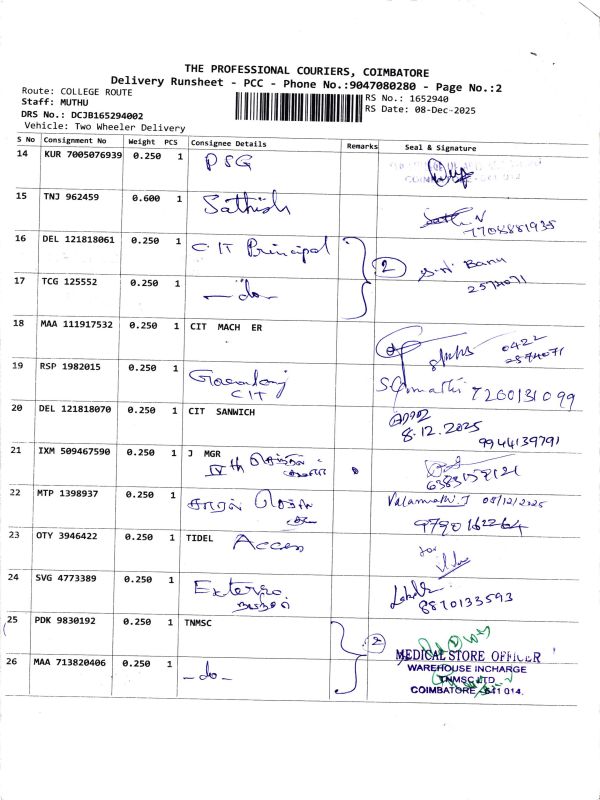 THE PROFESSIONAL COURIERS, COIMBATORE
Delivery Runsheet - PCC - Phone No.:9047080280 - Page No.:2
Route: COLLEGE ROUTE
Staff: MUTHU
DRS No.: DCJB165294002
Vehicle: Two Wheeler Delivery
RS No.: 1652940
RS Date: 08-Dec-2025
S No Consignment No Weight PCS Consignee Details Remarks Seal & Signature
14 KUR 7005076939 0.250 1 PSG
15 TNJ 962459 0.600 1 Sathish
7708881935
16 DEL 121818061 0.250 1 CIT Principal
2 Banu
2574071
17 TCG 125552 0.250 1 -do-
18 MAA 111917532 0.250 1 CIT MACH ER
0422
2574071
19 RSP 1982015 0.250 1
CIT
7200131099
20 DEL 121818070 0.250 1 CIT SANWICH
8.12.2025
9944139791
21 IXM 509467590 0.250 1 J MGR
IVth
6383159121
22 MTP 1398937 0.250 1
08/12/2025
9790162264
23 OTY 3946422 0.250 1 TIDEL Access
for
24 SVG 4773389 0.250 1
8870133593
25 PDK 9830192 0.250 1 TNMSC
2
26 MAA 713820406 0.250 1 -do-
MEDICAL STORE OFFICER
WAREHOUSE INCHARGE
TNMSC LTD
COIMBATORE - 641 014.